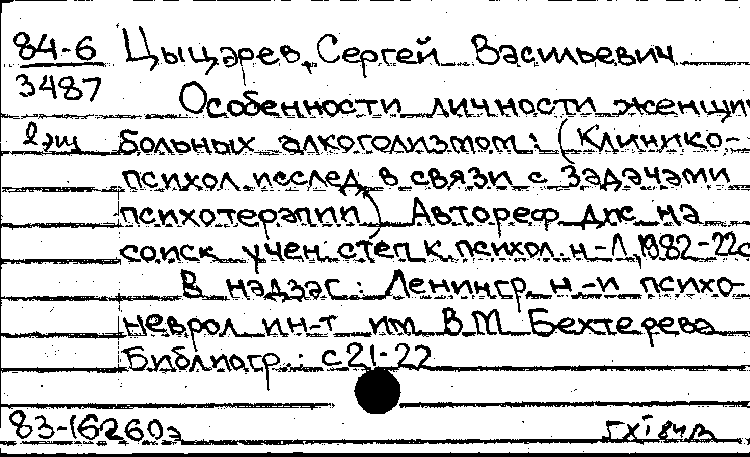 84-6 Цыцарев, Сергей Васильевич
3487
Особенности личности женщин
2эш больных алкоголизмом: (Клинико-
психол. исслед. в связи с задачами
психотерапии) Автореф. дис. на
соиск. учен. степ. к. психол. н.-Л, 1982-22с
В надзаг.: Ленингр. н.-и. психо-
неврол. ин-т им. В.М. Бехтерева
Библиогр.: с 21-22
83-16260э